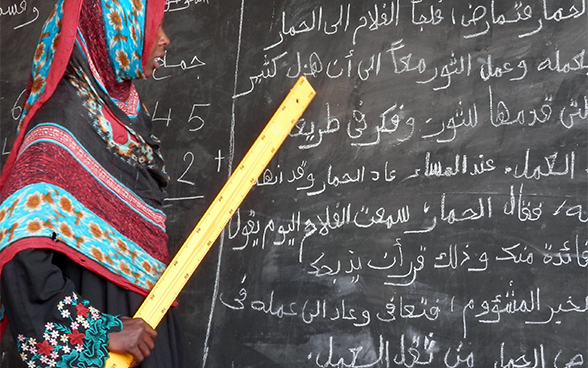 الحمار فتمارض، فلجأ الفلاح الى الحمار
لعمله وعمل الثور معاً الى أن هزل كثير
التى قدمها للثور، وفكر فى طريقة
العمل. عند المساء عاد الحمار وقد انه
فقال الحمار سمعت الفلاح اليوم يقول
فائدة منك وذلك قرر أن يذبحك
الخبر المشؤوم، فتعافى وعاد الى عمله فى
الحمار من ثقل العمل.
جمع
45
2 +
6